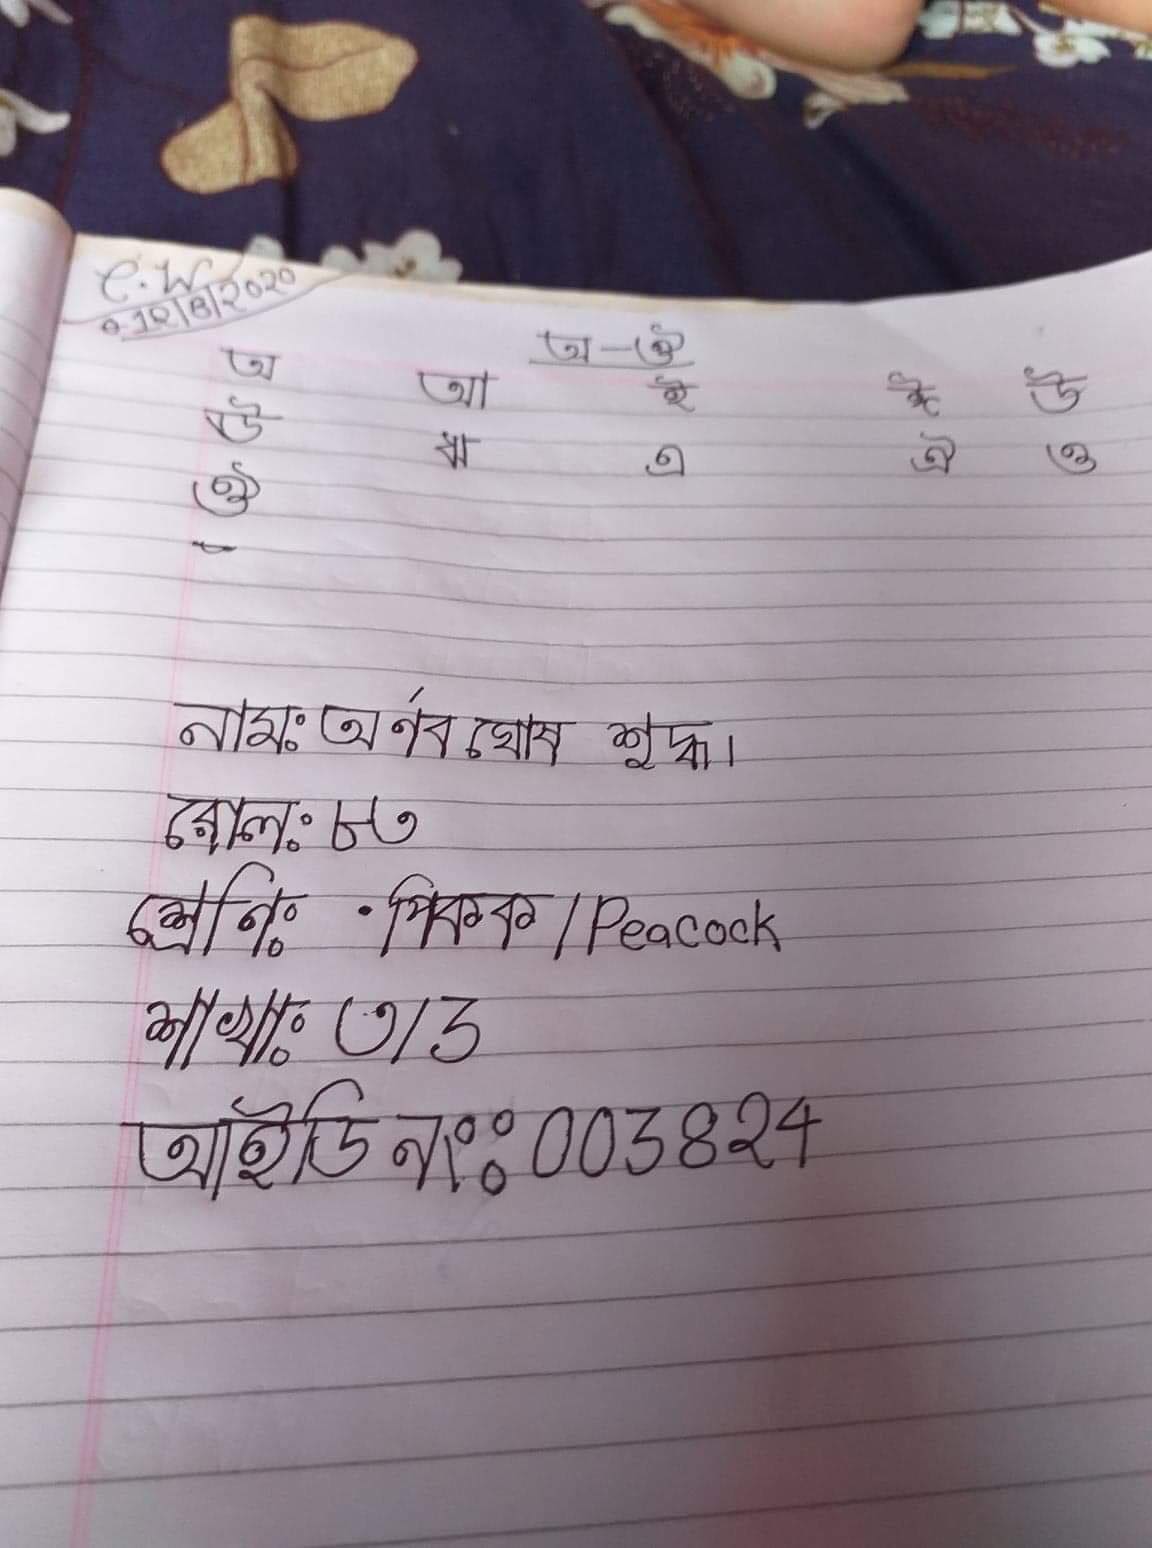 C.W
12/8/2020
অ-ঔ
অ আ ই ঈ উ
ঊ ঋ এ ঐ ও
ঔ
নামঃ অর্ণব ঘোষ শুদ্ধ।
রোলঃ ৮৩
শ্রেনিঃ পিকক / Peacock
শাখাঃ ৩/3
আইডি নংঃ 003824